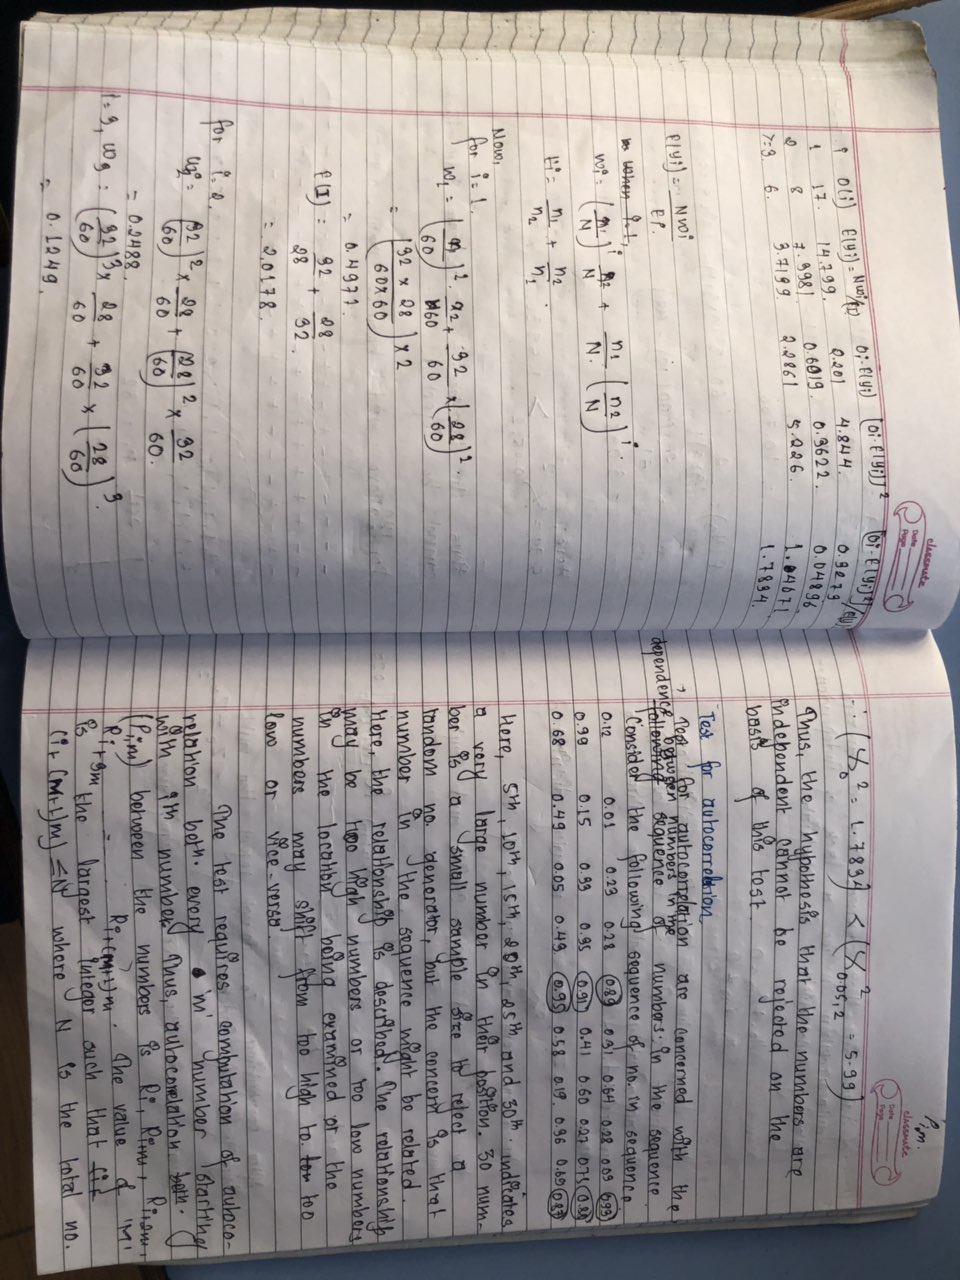 classmate
Date
Page
i O(i) E(Yi) = Nwi/E(I) Oi-E(Yi) [Oi-E(Yi)]² [Oi-E(Yi)]²/E(Yi)
1 17. 14.799. 2.201 4.844. 0.3273
2 8 7.3981 0.6019. 0.3622. 0.04896
>=3. 6. 3.7139. 2.2861 5.226. 1.40671
1.7834.
E(Yi) = Nwi
E(I).
when
wi = (n1/N)^i n2/N + n1/N. (n2/N)^i.
n1/n2 + n2/n1.
Now,
for i=1.
w1 = (32/60)². 28/60 + 32/60 × (28/60)².
= (32 × 28 / 60×60) × 2
= 0.4977.
E(I) = 32/28 + 28/32.
= 2.0178.
for i=2.
w2 = (32/60)² × 28/60 + (28/60)² × 32/60.
= 0.2488
i=3, w3 = (32/60)³ × 28/60 + 32/60 × (28/60)³.
= 0.1249.
i,m.
classmate
Date
Page
∴ (X0² = 1.7834) < (X²0.05,2 = 5.99)
Thus, the hypothesis that the numbers are
independent cannot be rejected on the
basis of this test.
Test for autocorrelation
→ Test for autocorrelation are concerned with the
dependence between numbers in the sequence
Consider the following sequence of no. in sequence
0.12 0.01 0.23 0.28 0.89 0.31 0.64 0.28 0.09 0.93
0.99 0.15 0.33 0.35 0.91 0.41 0.60 0.27 0.75 0.88
0.68 0.49 0.05 0.43 0.95 0.58 0.19 0.36 0.69 0.87
Here, 5th, 10th, 15th, 20th, 25th and 30th. indicates
a very large number in their position. 30 num-
ber is a small sample size to reject a
random no. generator, but the concern is that
number in the sequence might be related.
Here, the relationship is described. The relationship
may be too high numbers or too low numbers
in the location being examined or the
numbers may shift from too high to too
low or vice-versa.
The test requires computation of autoco-
relation betn. every 'm' number starting
with ith number. Thus, autocorrelation
(Pi,m) between the numbers is Ri, Ri+m, Ri+2m,
Ri+3m ... Ri+(M+1)m. The value of 'M'
is the largest integer such that
(i+(M+1)m) ≤ N where N is the total no.